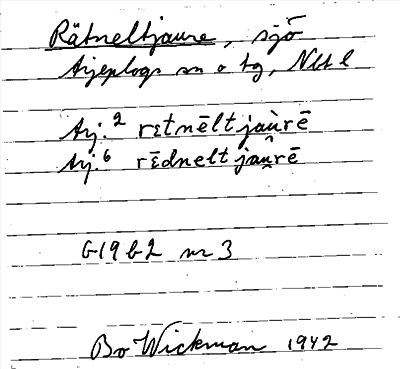 Rätneltjaure, sjö
Arjeplogs sn o tg, Nbt l
Arj.² rɛtnēltjaùrē
Arj.⁶ rɛ̄dnelt jaû̯rē
G19 b2 nr 3
Bo Wickman 1942